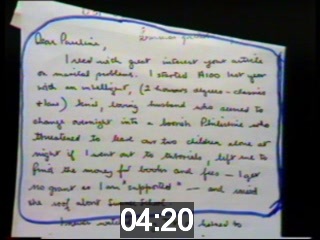 Dear Pauline,
I read with great interest your article
on marital problems. I started A100 last year
with an intelligent, (2 honours degrees - classics
+ law) kind, loving husband who seemed to
change overnight into a boorish Philistine who
threatened to leave our two children alone at
night if I went out to tutorials, left me to
find the money for books and fees - I get
no grant as I am "supported" - and
she Summer School
helped to
04:20